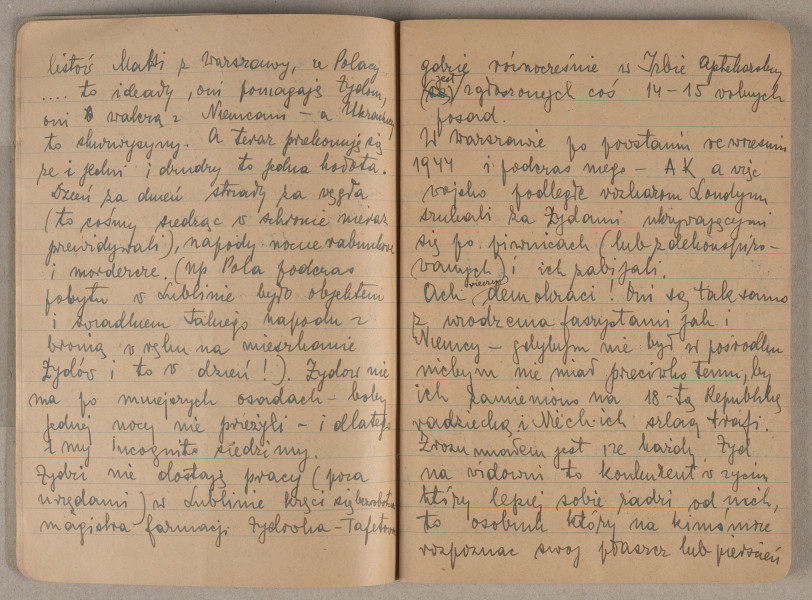 listów Maksi z Warszawy, że Polacy
.... to ideały, oni pomagają Żydom,
oni walczą z Niemcami – a Ukraińcy
to skurwysyny. A teraz przekonuję się
że i jedni i drudzy to jedna hołota.
Dzień za dzień strzały za węgła
(to cośmy siedząc w schronie nieraz
przewidywali), napady nocne rabunkowe
i mordercze. (np Pola podczas
pobytu w Lublinie była objektem
i świadkiem takiego napadu z
bronią w ręku na mieszkanie
Żydów i to w dzień!). Żydów nie
ma po mniejszych osadach – boby
jednej nocy nie przeżyli – i dlatego
i my incognito siedzimy.
Żydzi nie dostają pracy (poza
urzędami) w Lublinie kręci się bezrobotna
magistra farmacji żydówka – Tafetowa
gdzie równocześnie w Izbie Aptekarskiej
jest zgłoszonych coś 14–15 wolnych
posad.
W Warszawie po powstaniu we wrześniu
1944 i podczas niego – AK a więc
wojsko podległe rozkazom Londynu
szukali za Żydami ukrywającymi
się po piwnicach (lub zdekonspiro-
wanych) i ich zabijali.
Ach demokraci! Oni są tak samo
z urodzenia faszystami jak i
Niemcy – gdybym nie był w pośrodku
nichbym nie miał przeciwko temu, by
ich zamieniono na 18-tą Republikę
radziecką i niech ich szlag trafi.
Zrozumiałem jest, że każdy Żyd
na widowni to konkurent w życiu
który lepiej sobie radzi od nich,
to osobnik który na kimś może
rozpoznać swój płaszcz lub pierścień